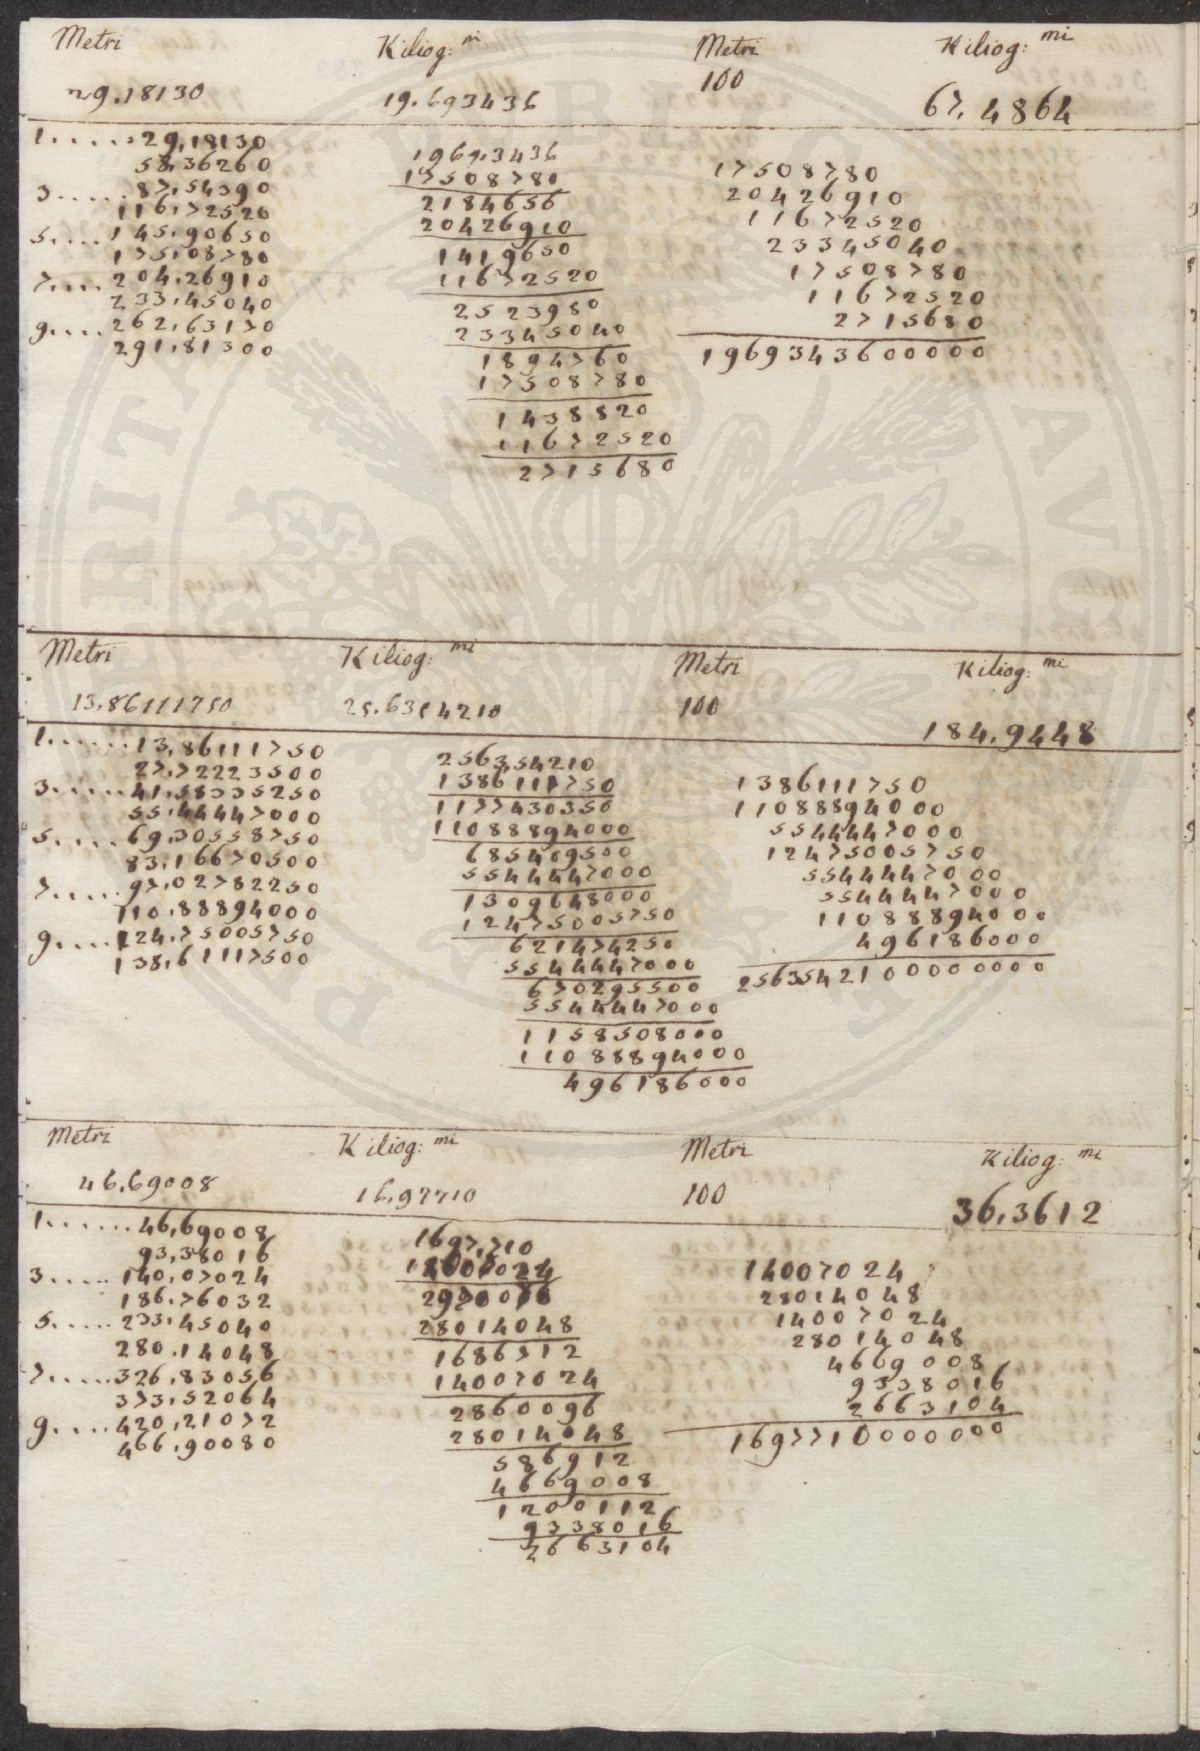 Metri Kiliog: mi Metri Kiliog: mi
29.18130 19.693436 100 67.4864
1......29,18130
58,36260
3......87,54390
116,72520
5.....145,90650
175,08780
7....204,26910
233,45040
9....262,63170
291,81300
1969,3436
17508780
2184656
20426910
1419650
11672520
2523980
23345040
1894760
17508780
1438820
11672520
2715680
17508780
20426910
11672520
23345040
17508780
11672520
2715680
1969343600000
Metri Kiliog: mi Metri Kiliog: mi
13,861111750 25.6354210 100 184.9448
1......13,86111750
27,72223500
3......41,58335250
55,44447000
5.....69,30558750
83,16670500
7.....97,02782250
110,88894000
9....124,75005750
138,61117500
2563,54210
1386111750
1177430350
11088894000
685409500
5544447000
1309648000
12475005750
621474250
5544447000
670295500
5544447000
1158508000
11088894000
496186000
1386111750
11088894000
5544447000
12475005750
5544447000
5544447000
11088894000
496186000
256354210000000
Metri Kiliog: mi Metri Kiliog: mi
46,69008 16,97710 100 36,3612
1.......46,69008
93,38016
3.....140,07024
186,76032
5.....233,45040
280,14048
7.....326,83056
373,52064
9....420,21072
466,90080
1697,710
14007024
2970076
28014048
1686712
14007024
2860096
28014048
586912
4669008
1200112
9338016
2663104
14007024
28014048
14007024
28014048
4669008
9338016
2663104
1697710000000